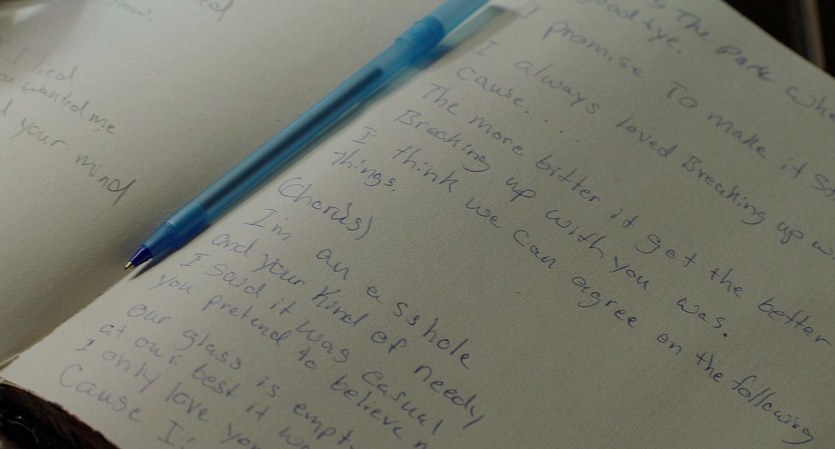 I lied
wanted me
your mind
The park
goodbye.
I promise To make it
I always loved Breaking up
cause....
The more bitter it got the better
Breaking up with you was.
I think we can agree on the following
things.
(Chorus)
I'm an asshole
and your kind of needy
I said it was casual
you pretend to believe
our glass is empty
at our best it
I only love you
Cause I